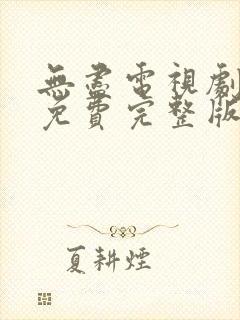 無盡電視劇
免費完整版
夏耕煙